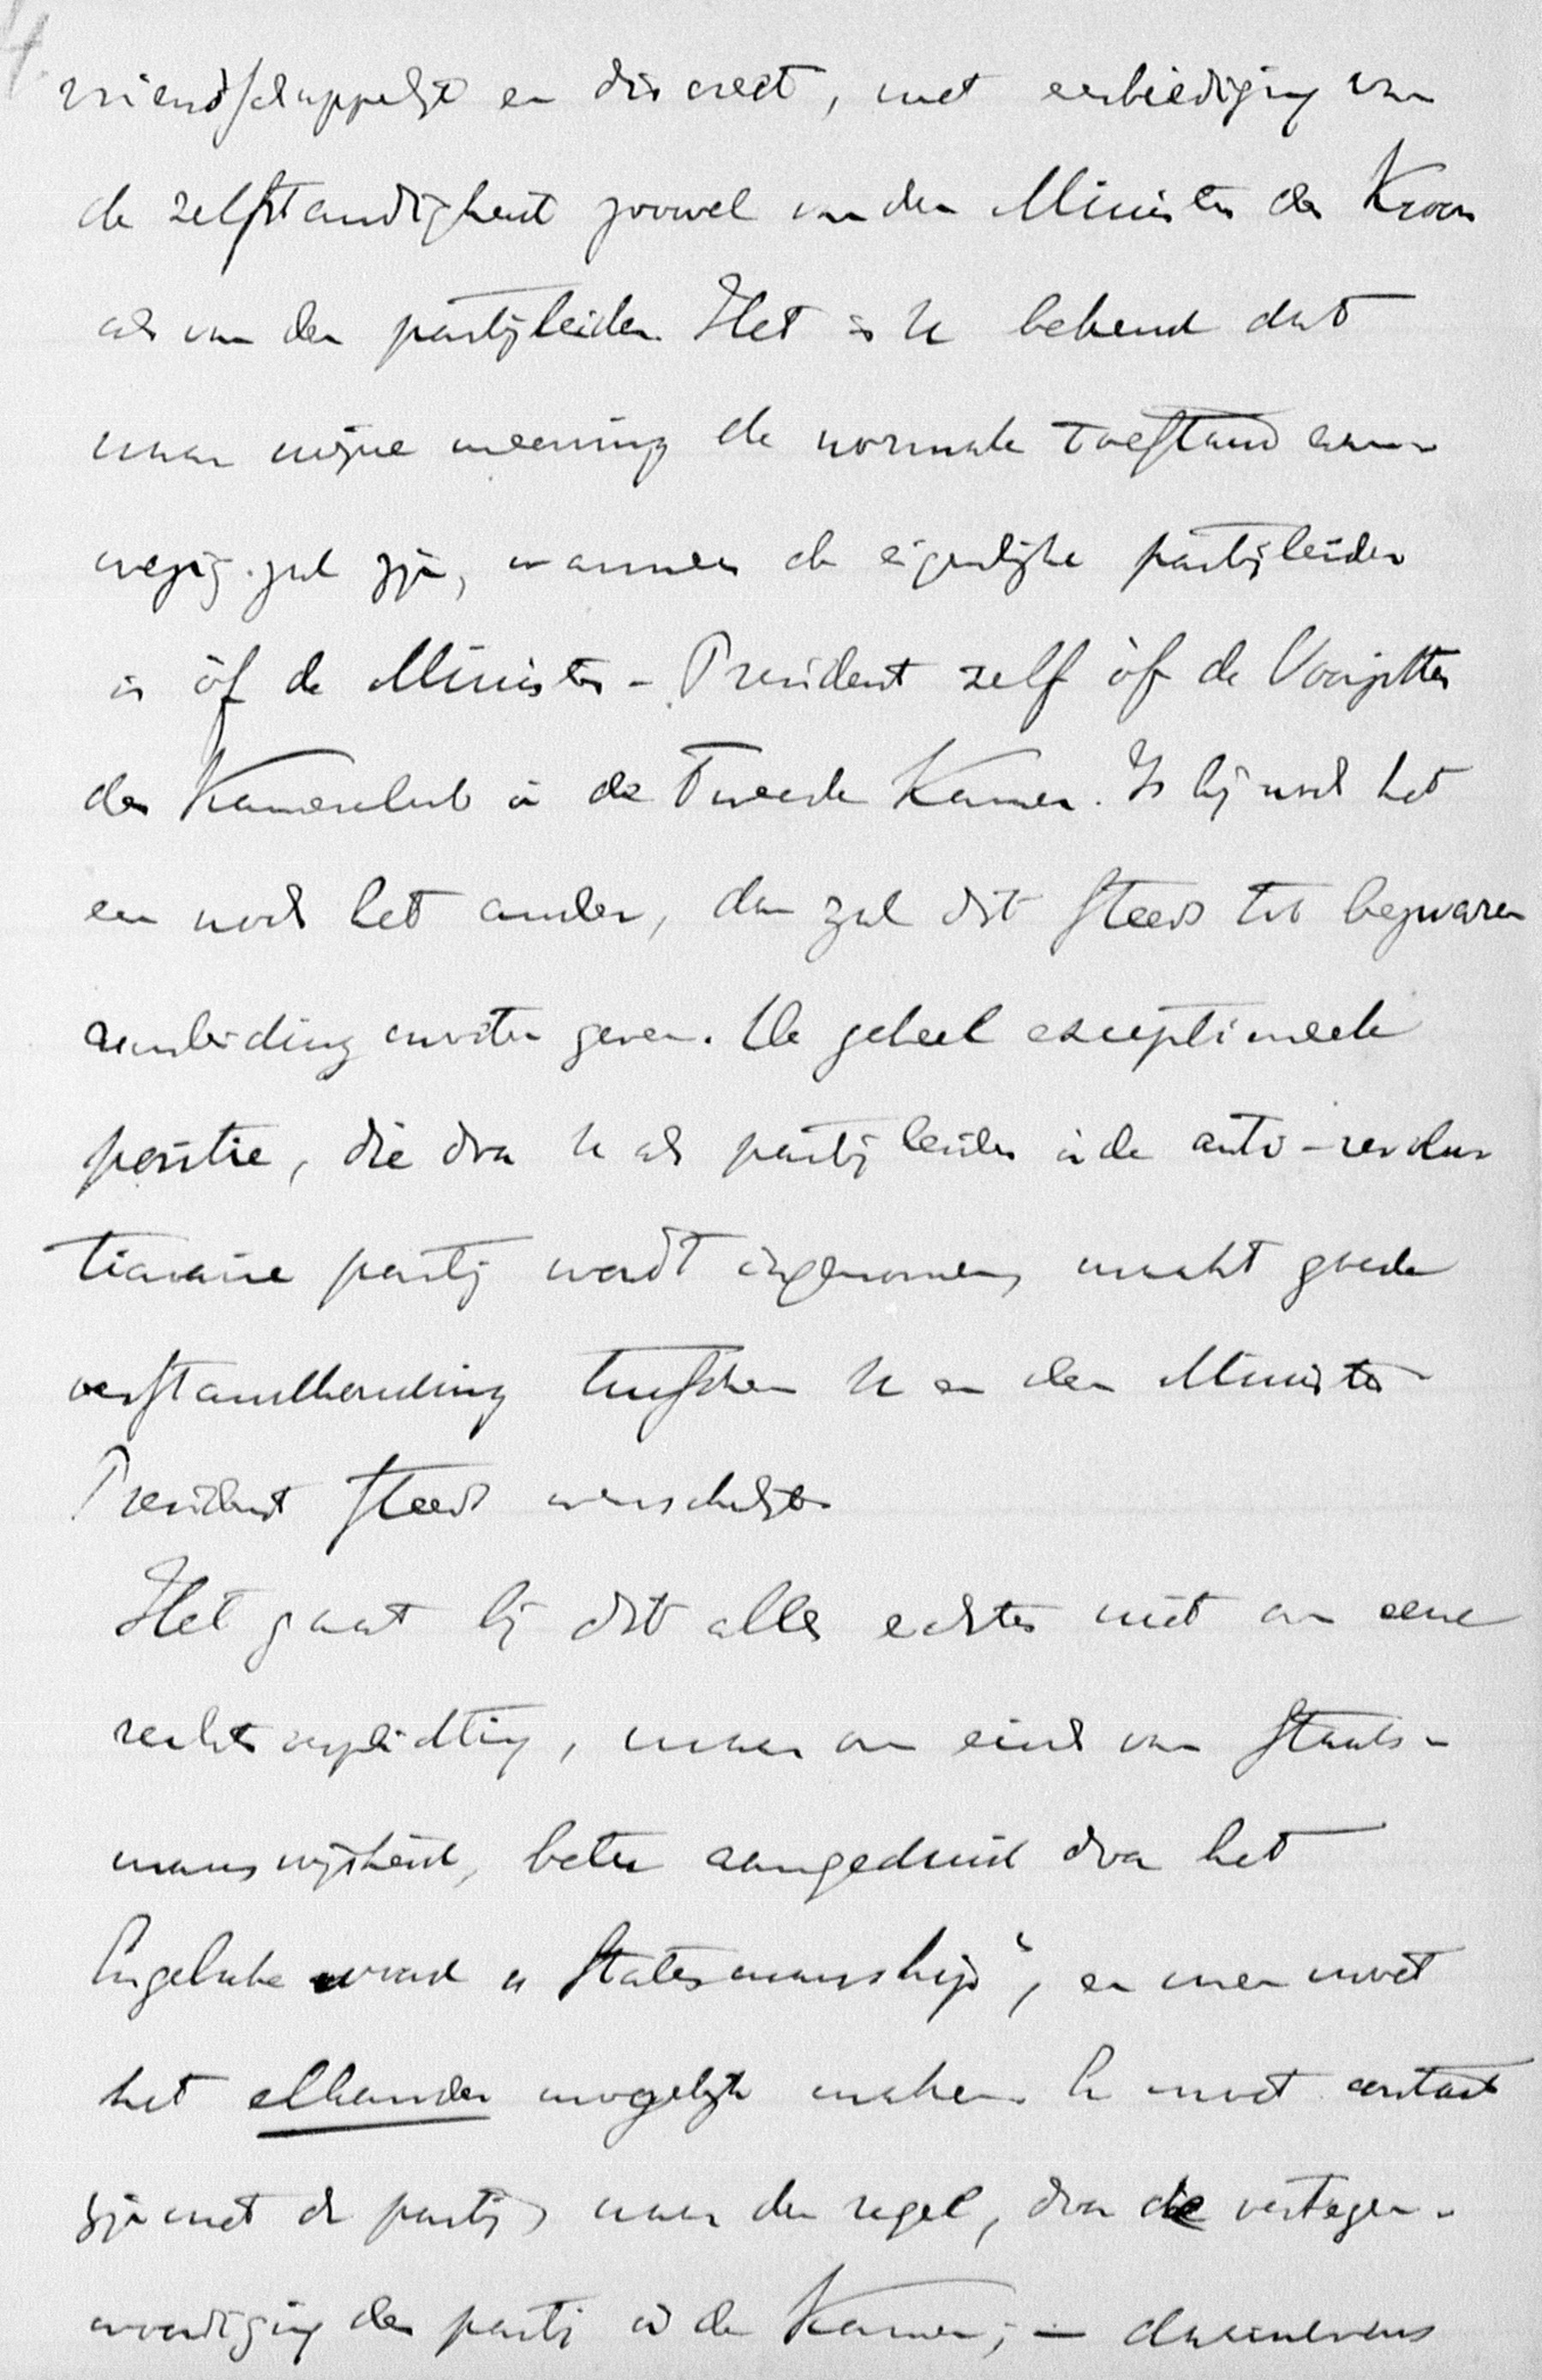 4.
vriendschappelijk en discreet, met eerbiediging van
de zelfstandigheid zoowel van den Minister der Kroon
als van den partijleider. Het is U bekend dat
naar mijne meening de normale toestand aan-
wezig zal zijn, wanneer de eigenlijke partijleider
is òf de Minister-President zelf òf de Voorzitter
der Kamerclub in de Tweede Kamer. Is hij noch het
een noch het ander, dan zal dit steeds tot bezwaren
aanleiding moeten geven. De geheel exceptioneele
positie, die door U als partijleider in de anti-revolu-
tionaire partij wordt ingenomen, maakt goede
verstandhouding tusschen U en den Minister-
President steeds wenschelijk.
Het gaat bij dit alles echter niet om eene
rechtsverplichting, maar om eisch van staats-
manswijsheid, beter aangeduid door het
Engelsche woord „statesmanship", en men moet
het elkander mogelijk maken. Er moet contact
zijn met de partij, naar den regel, door de vertegen-
woordiging der partij in de Kamer; —